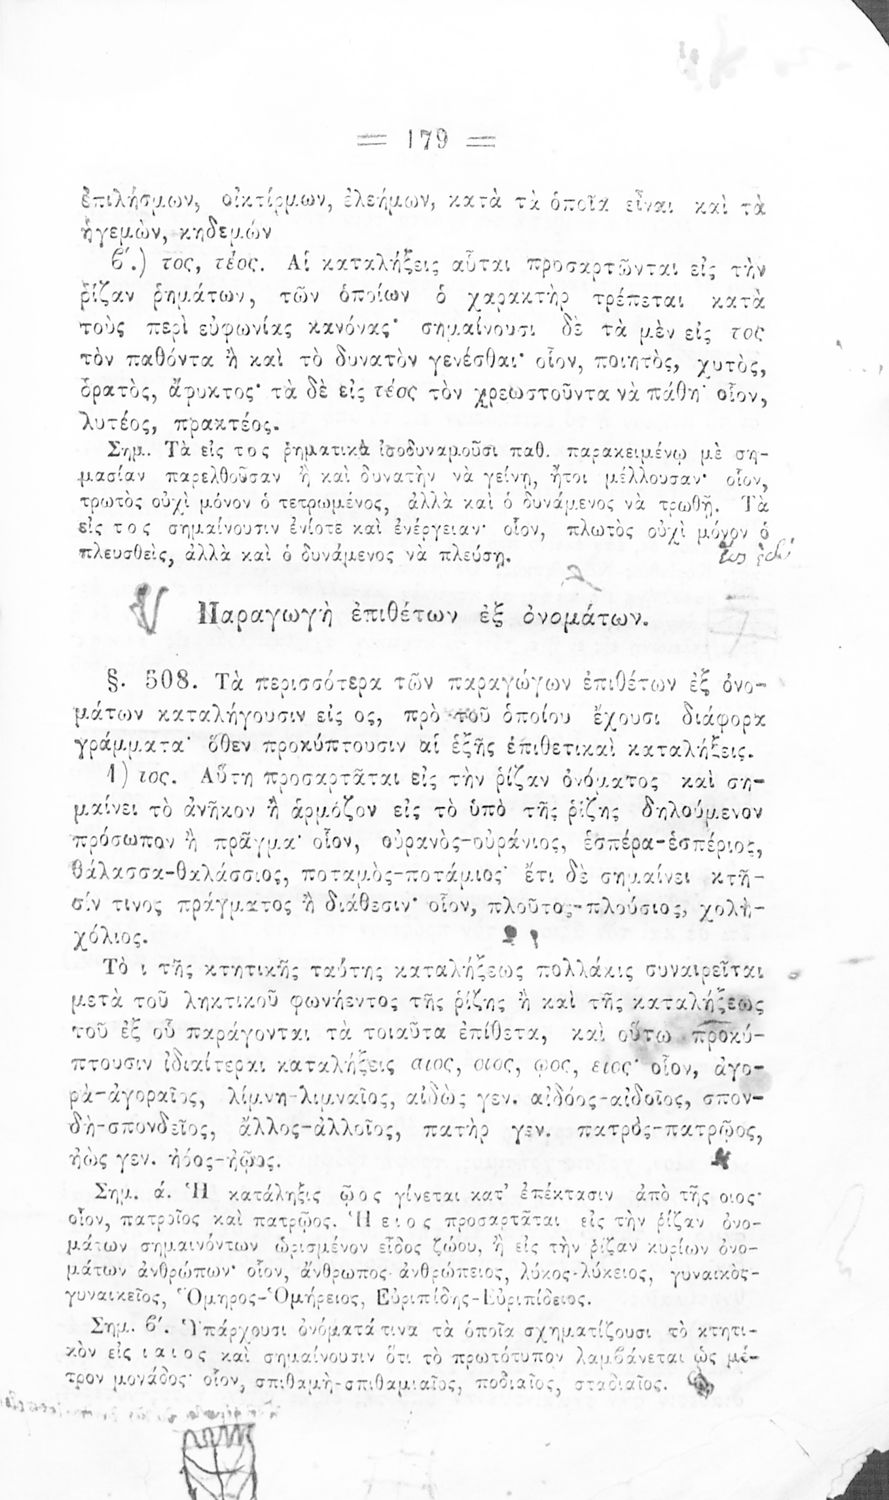 = 179 =
ἐπιλήσμων, οἰκτίρμων, ἐλεήμων, κατὰ τὰ ὁποῖα εἶναι καὶ τὰ
ἡγεμὼν, κηδεμών
β΄.) τος, τέος. Αἱ καταλήξεις αὗται προσαρτῶνται εἰς τὴν
ῥίζαν ῥημάτων, τῶν ὁποίων ὁ χαρακτὴρ τρέπεται κατὰ
τοὺς περὶ εὐφωνίας κανόνας· σημαίνουσι δὲ τὰ μὲν εἰς τος
τὸν παθόντα ἢ καὶ τὸ δυνατὸν γενέσθαι· οἷον, ποιητὸς, χυτὸς,
ὁρατὸς, ἄφυκτος· τὰ δὲ εἰς τέος τὸν χρεωστοῦντα νὰ πάθῃ· οἷον,
λυτέος, πρακτέος.
Σημ. Τὰ εἰς τος ῥηματικὰ ἰσοδυναμοῦσι παθ. παρακειμένῳ μὲ ση-
μασίαν παρελθοῦσαν ἢ καὶ δυνατὴν νὰ γείνῃ, ἤτοι μέλλουσαν· οἷον,
τρωτὸς οὐχὶ μόνον ὁ τετρωμένος, ἀλλὰ καὶ ὁ δυνάμενος νὰ τρωθῇ. Τὰ
εἰς τος σημαίνουσιν ἐνίοτε καὶ ἐνέργειαν· οἷον, πλωτὸς οὐχὶ μόνον ὁ
πλευσθεὶς, ἀλλὰ καὶ ὁ δυνάμενος νὰ πλεύσῃ.
Παραγωγὴ ἐπιθέτων ἐξ ὀνομάτων.
§. 508. Τὰ περισσότερα τῶν παραγώγων ἐπιθέτων ἐξ ὀνο-
μάτων καταλήγουσιν εἰς ος, πρὸ τοῦ ὁποίου ἔχουσι διάφορα
γράμματα· ὅθεν προκύπτουσιν αἱ ἑξῆς ἐπιθετικαὶ καταλήξεις.
1) ιος. Αὕτη προσαρτᾶται εἰς τὴν ῥίζαν ὀνόματος καὶ ση-
μαίνει τὸ ἀνῆκον ἢ ἁρμόζον εἰς τὸ ὑπὸ τῆς ῥίζης δηλούμενον
πρόσωπον ἢ πρᾶγμα· οἷον, οὐρανὸς-οὐράνιος, ἑσπέρα-ἑσπέριος,
θάλασσα-θαλάσσιος, ποταμὸς-ποτάμιος· ἔτι δὲ σημαίνει κτῆ-
σίν τινος πράγματος ἢ διάθεσιν· οἷον, πλοῦτος-πλούσιος, χολὴ-
χόλιος.
Τὸ ι τῆς κτητικῆς ταύτης καταλήξεως πολλάκις συναιρεῖται
μετὰ τοῦ ληκτικοῦ φωνήεντος τῆς ῥίζης ἢ καὶ τῆς καταλήξεως
τοῦ ἐξ οὗ παράγονται τὰ τοιαῦτα ἐπίθετα, καὶ οὕτω προκύ-
πτουσιν ἰδιαίτεραι καταλήξεις αιος, οιος, ῳος, ειος· οἷον, ἀγο-
ρὰ-ἀγοραῖος, λίμνη-λιμναῖος, αἰδὼς γεν. αἰδόος-αἰδοῖος, σπον-
δὴ-σπονδεῖος, ἄλλος-ἀλλοῖος, πατὴρ γεν. πατρὸς-πατρῷος,
ἠὼς γεν. ἠόος-ἠῷος.
Σημ. ά. Ἡ κατάληξις ῷος γίνεται κατ᾽ ἐπέκτασιν ἀπὸ τῆς οιος·
οἷον, πατροῖος καὶ πατρῷος. Ἡ ειος προσαρτᾶται εἰς τὴν ῥίζαν ὀνο-
μάτων σημαινόντων ὡρισμένον εἶδος ζώου, ἢ εἰς τὴν ῥίζαν κυρίων ὀνο-
μάτων ἀνθρώπων· οἷον, ἄνθρωπος-ἀνθρώπειος, λύκος-λύκειος, γυναικὸς-
γυναικεῖος, Ὅμηρος-Ὁμήρειος, Εὐριπίδης-Εὐριπίδειος.
Σημ. β΄. Ὑπάρχουσι ὀνόματά τινα τὰ ὁποῖα σχηματίζουσι τὸ κτητι-
κὸν εἰς ιαιος καὶ σημαίνουσιν ὅτι τὸ πρωτότυπον λαμβάνεται ὡς μέ-
τρον μονάδος· οἷον, σπιθαμὴ-σπιθαμιαῖος, ποδιαῖος, σταδιαῖος.